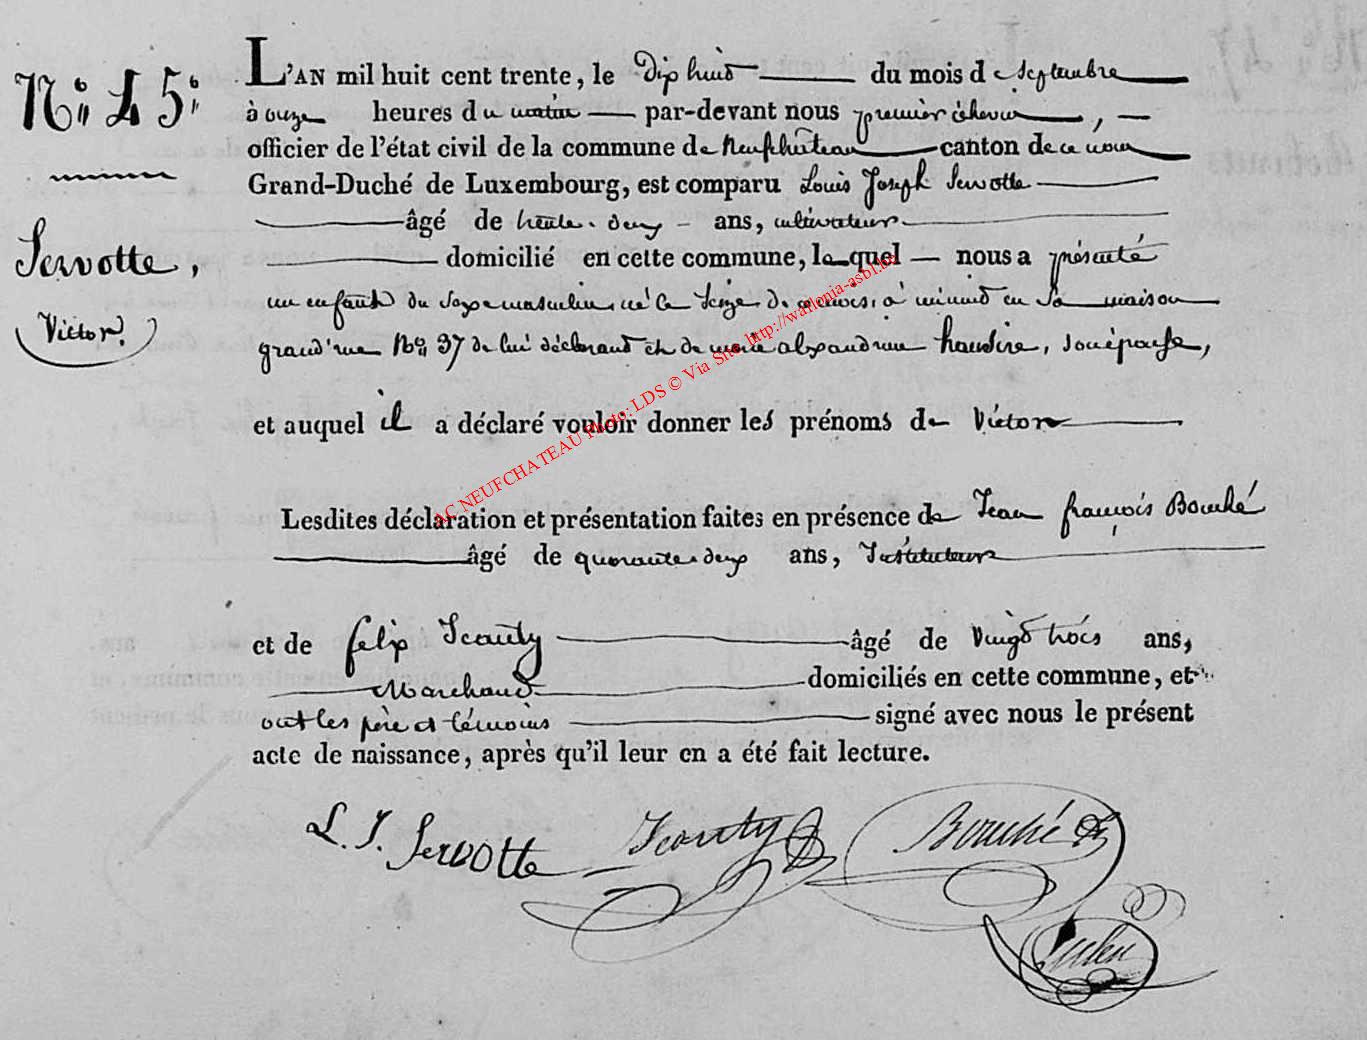 N.º 45.
Servotte,
Victor.
L'AN mil huit cent trente, le dix huit du mois de septembre
à onze heures du matin par-devant nous premier échevin,
officier de l'état civil de la commune de Neufchâteau canton de ce nom
Grand-Duché de Luxembourg, est comparu Louis Joseph Servotte
âgé de trente-deux ans, cultivateur
domicilié en cette commune, lequel nous a présenté
un enfant du sexe masculin, né le seize de ce mois, à minuit en sa maison
grand'rue N.º 37 de lui déclarant et de marie alexandrine, son épouse,
et auquel il a déclaré vouloir donner les prénoms de Victor
Lesdites déclaration et présentation faites en présence de Jean françois Bouché
âgé de quarante-deux ans, Instituteur
et de felix Jeanty âgé de vingt trois ans,
Marchand domiciliés en cette commune, et
ont les père et témoins signé avec nous le présent
acte de naissance, après qu'il leur en a été fait lecture.
L. J. Servotte Jeanty Bouché
AC NEUFCHATEAU Photo: LDS © Via Site http://wallonia-asbl.be